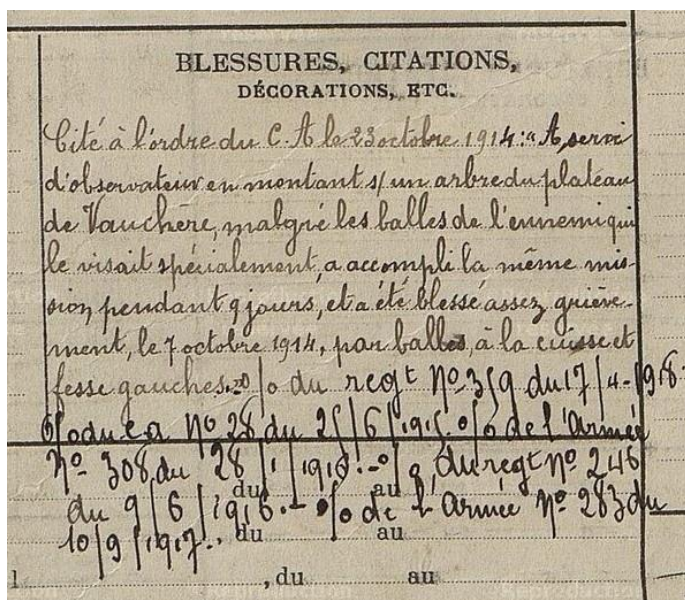 BLESSURES, CITATIONS,
DÉCORATIONS, ETC.
Cité à l'ordre du C. A le 23 octobre 1914: "A servi
d'observateur en montant s/ un arbre du plateau
de Vauchere, malgré les balles de l'ennemi qui
le visait spécialement, a accompli la même mis-
sion pendant 9 jours, et a été blessé assez griève-
ment, le 7 octobre 1914, par balles, à la cuisse et
fesse gauches. o/o du regt No 359 du 17/4-1918.
o/o du C a No 28 du 25/6/1915. o/o de l'Armée
No 308 du 28/1/1916. - o/o du regt No 246
du 9/6/1916. - o/o de l'Armée No 283 du
10/9/1917..
du au
du au
, du au